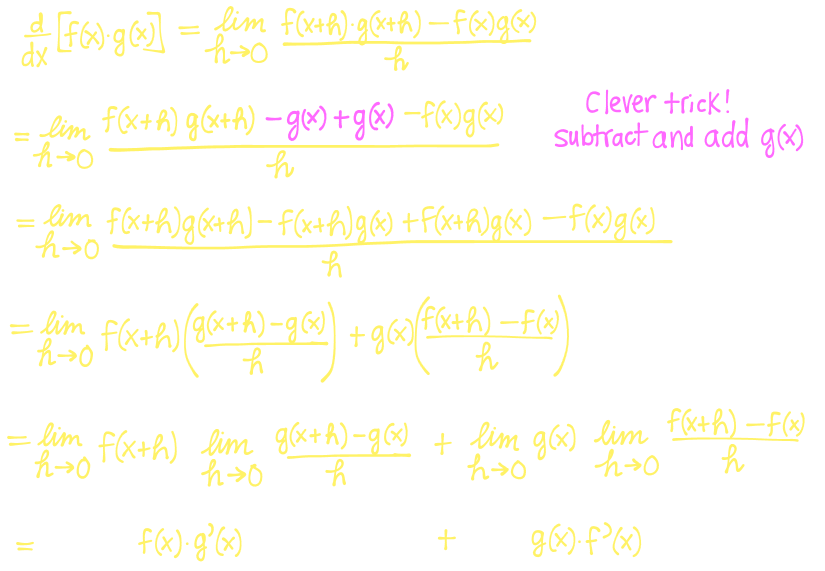 d/dx [f(x)·g(x)] = lim h→0 (f(x+h)·g(x+h) − f(x)g(x))/h
= lim h→0 (f(x+h) g(x+h) − g(x) + g(x) − f(x)g(x))/h
Clever trick!
subtract and add g(x)
= lim h→0 (f(x+h)g(x+h) − f(x+h)g(x) + f(x+h)g(x) − f(x)g(x))/h
= lim h→0 f(x+h)((g(x+h) − g(x))/h) + g(x)((f(x+h) − f(x))/h)
= lim h→0 f(x+h) lim h→0 (g(x+h) − g(x))/h + lim h→0 g(x) lim h→0 (f(x+h) − f(x))/h
= f(x)·g'(x) + g(x)·f'(x)